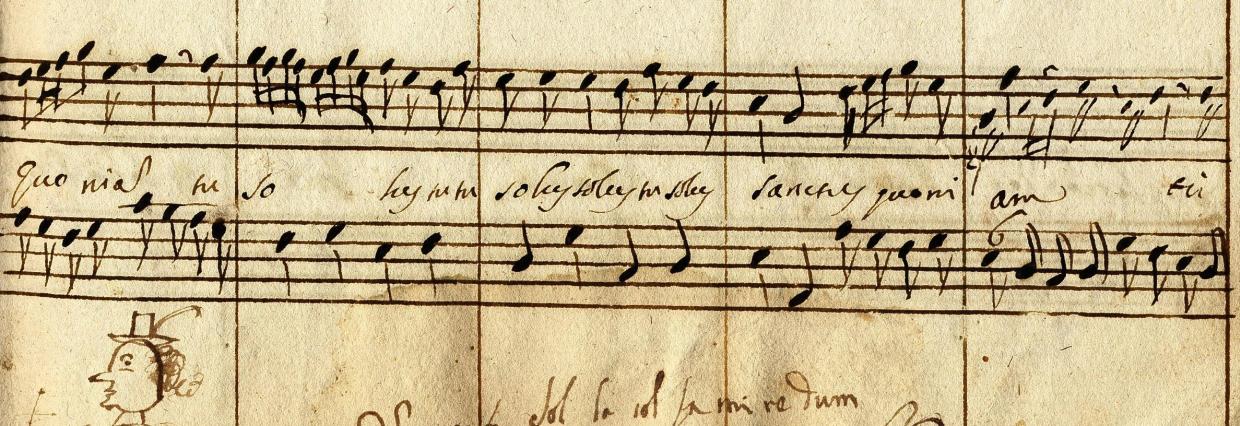 Quoniam tu so lus tu tu solus solus tu solus sanctus quoni am tu
sol la sol fa mi re dum